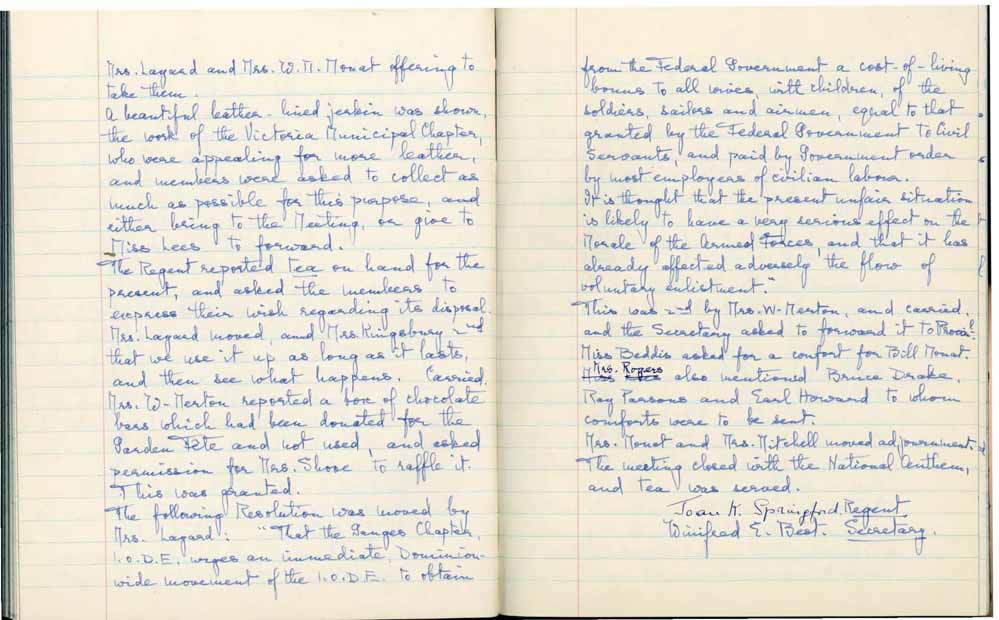 Mrs. Layard and Mrs. W. N. Mouat offering to
take them.
A beautiful leather-lined jerkin was shown,
the work of the Victoria Municipal Chapter,
who were appealing for more leather,
and members were asked to collect as
much as possible for this purpose, and
either bring to the Meeting, or give to
Miss Lees to forward.
The Regent reported tea on hand for the
present, and asked the members to
express their wish regarding its disposal.
Mrs. Layard moved, and Mrs. Kingsbury 2nd
that we use it up as long as it lasts,
and then see what happens. Carried.
Mrs. W-Merton reported a box of chocolate
bars which had been donated for the
Garden Fête and not used, and asked
permission for Mrs. Shove to raffle it.
This was granted.
The following Resolution was moved by
Mrs. Layard: "That the Ganges Chapter,
I.O.D.E. urges an immediate, Dominion-
wide movement of the I.O.D.E. to obtain
from the Federal Government a cost-of-living
bonus to all wives, with children, of the
soldiers, sailors and airmen, equal to that
granted by the Federal Government to Civil
Servants, and paid by Government order
by most employers of civilian labour.
It is thought that the present unfair situation
is likely to have a very serious effect on the
Morale of the Armed Forces, and that it has
already affected adversely the flow of
voluntary enlistment."
This was 2nd by Mrs. W-Merton, and carried,
and the Secretary asked to forward it to Provincl.
Miss Beddis asked for a comfort for Bill Mouat.
Mrs. Rogers
Miss also mentioned Bruce Drake,
Ray Parsons and Earl Howard to whom
comforts were to be sent.
Mrs. Mouat and Mrs. Mitchell moved adjournment.
The meeting closed with the National Anthem,
and tea was served.
Joan K. Springford. Regent
Winifred E. Best. Secretary.